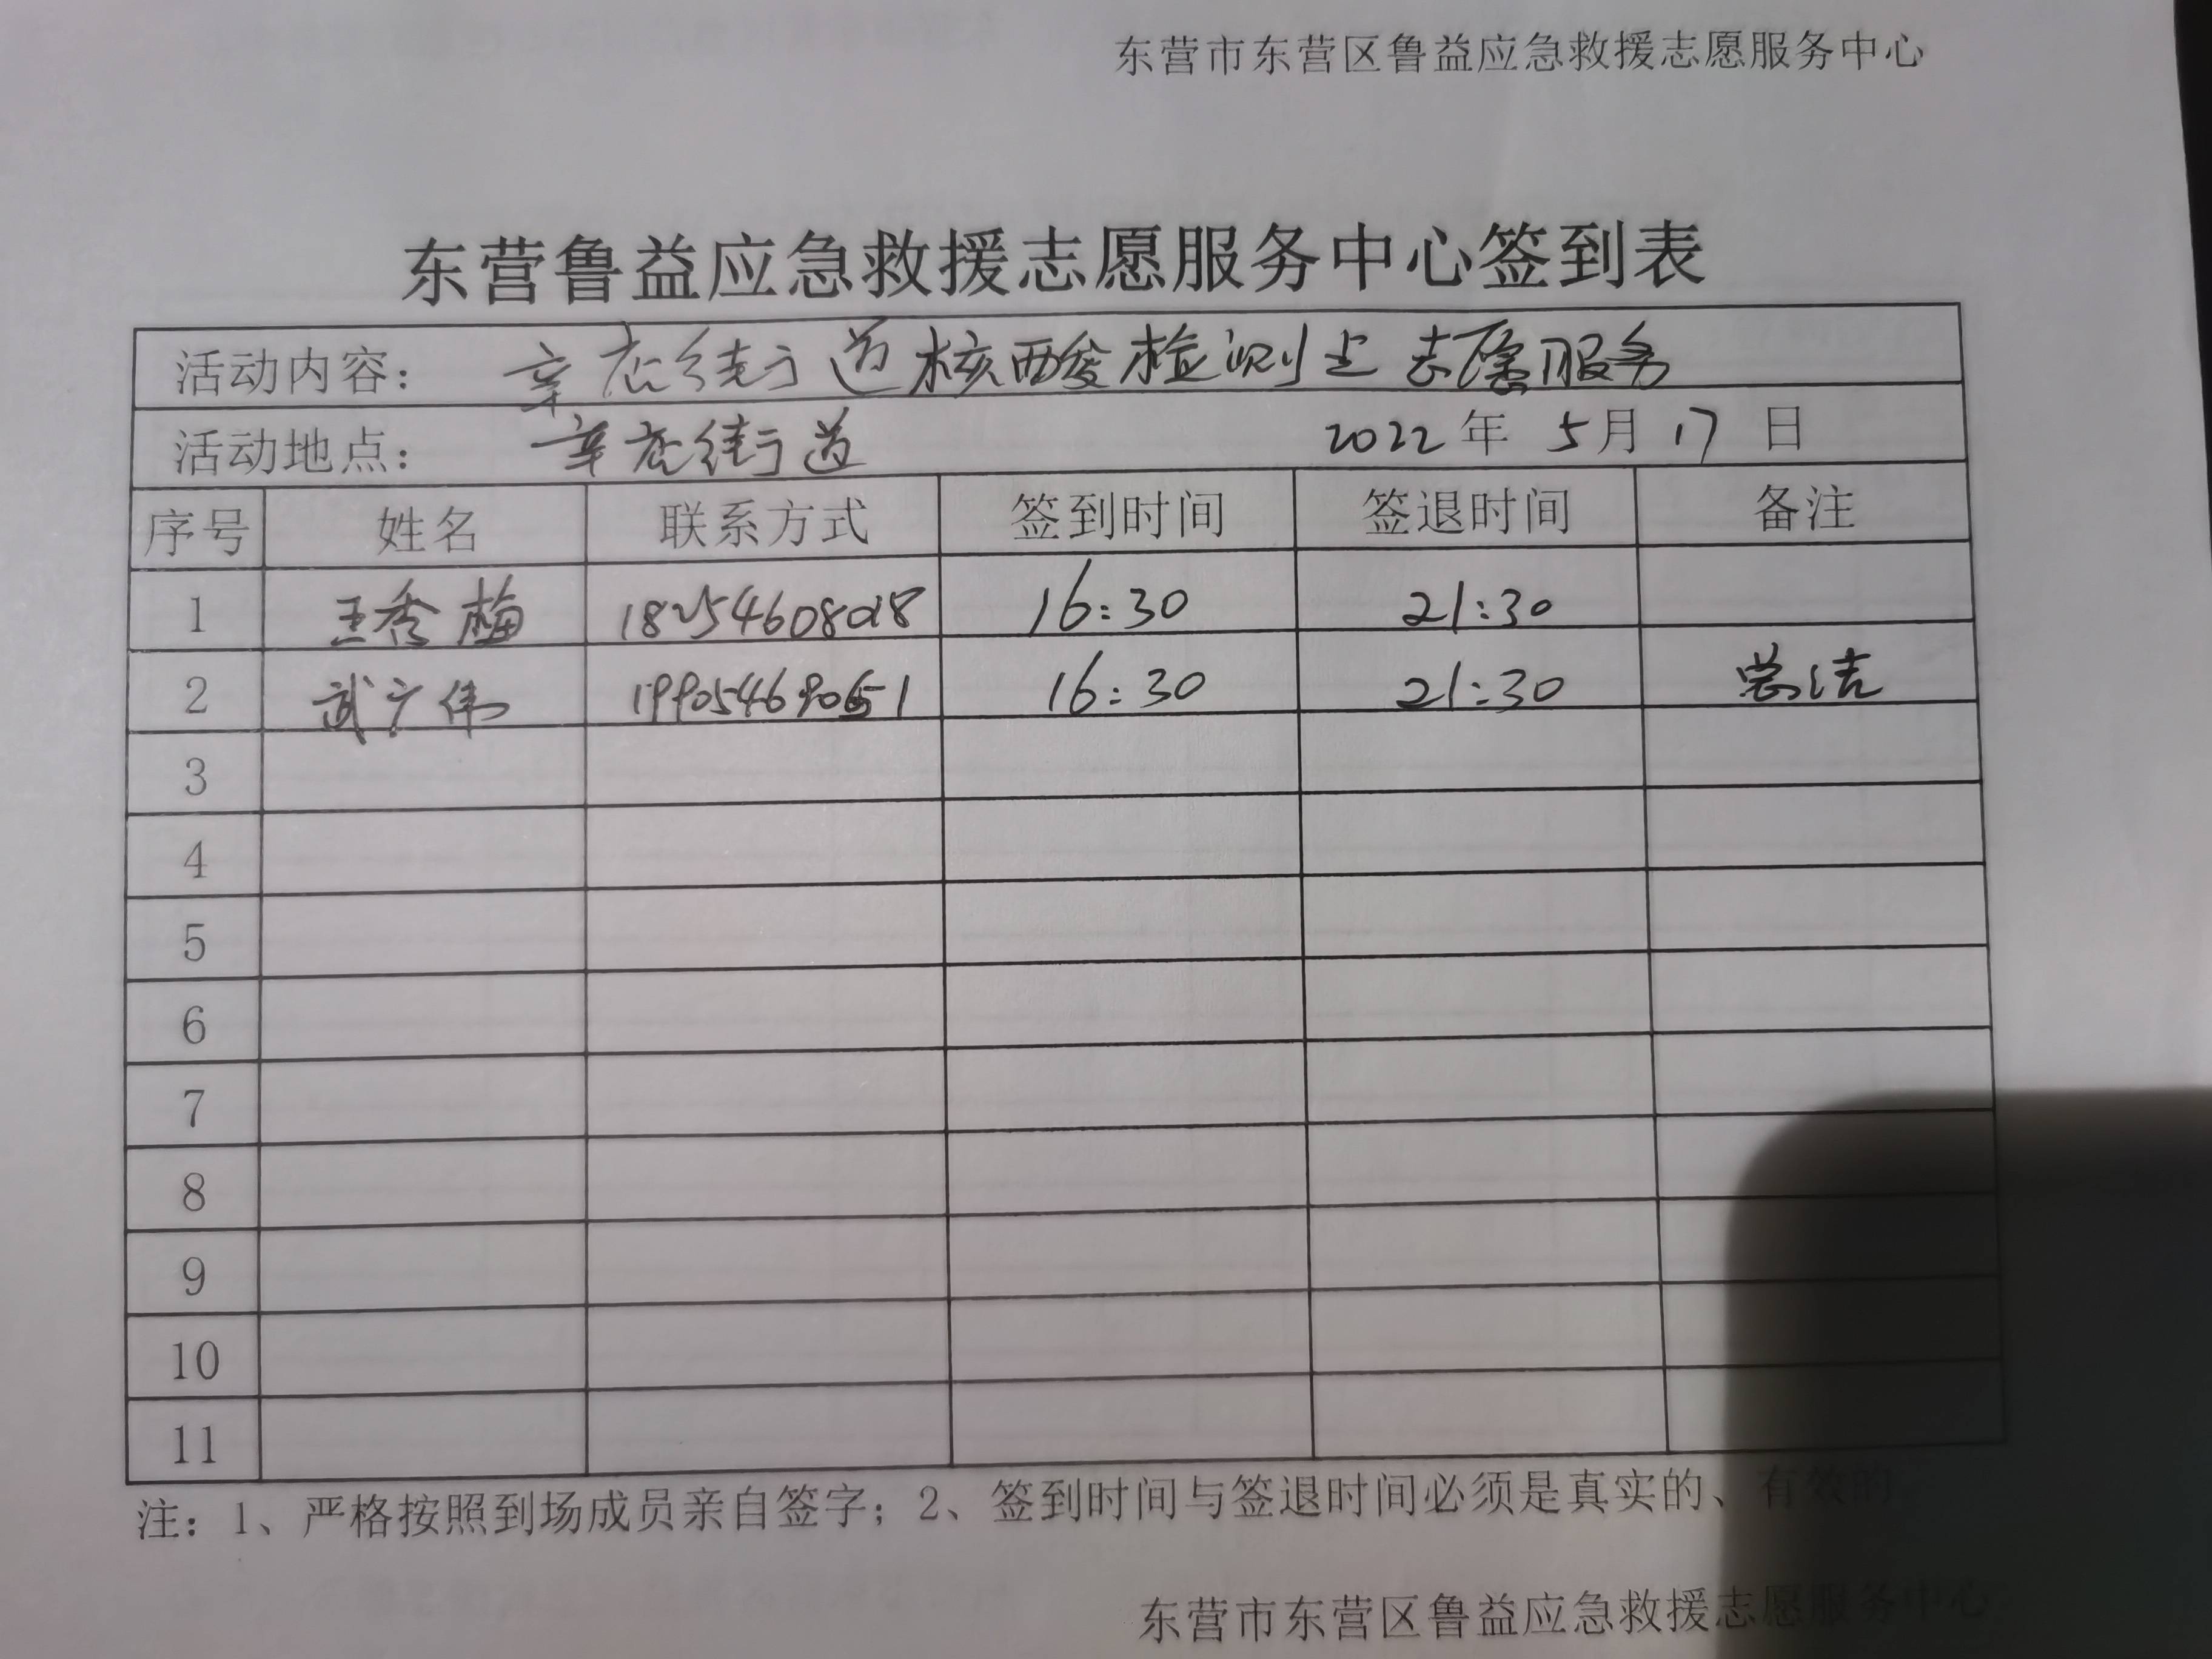 东营市东营区鲁益应急救援志愿服务中心
东营鲁益应急救援志愿服务中心签到表
活动内容： 辛店街道核酸检测点志愿服务
活动地点： 辛店街道 2022年 5月 17 日
序号 姓名 联系方式 签到时间 签退时间 备注
1 王秀梅 16:30 21:30
2 武广伟 16:30 21:30
3
4
5
6
7
8
9
10
11
注：1、严格按照到场成员亲自签字；2、签到时间与签退时间必须是真实的、有效的
东营市东营区鲁益应急救援志愿服务中心